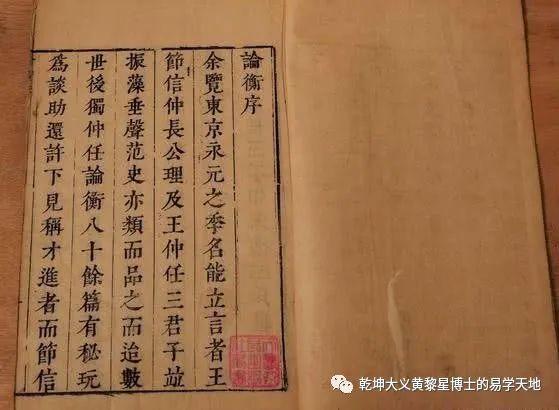 論衡序
余覽東京永元之季名能立言者王
節信仲長公理及王仲任三君子並
振藻垂聲范史亦類而品之而迨數
世後獨仲任論衡八十餘篇有秘玩
為談助還許下見稱才進者而節信
乾坤大义黄黎星博士的易学天地